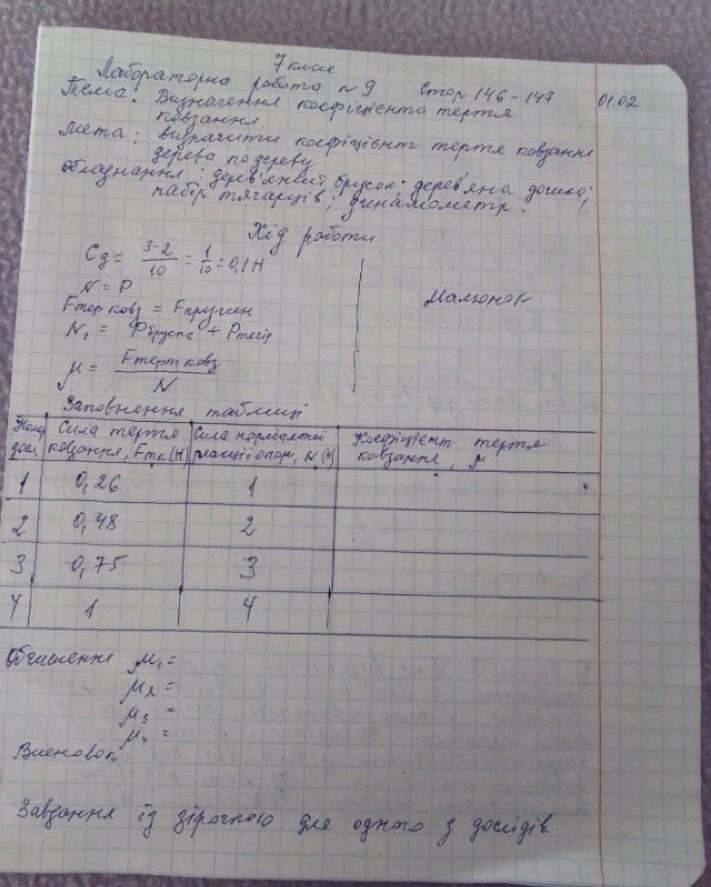 7 клас
Лабораторна робота №9 Стор 146-147 01.02
Тема: Визначення коефіцієнта тертя
ковзання
Мета: визначити коефіцієнт тертя ковзання
дерева по дереву
Обладнання: дерев'яний брусок; дерев'яна дошка;
набір тягарців; динамометр.
Хід роботи
Cд = 3-2/10 = 1/10 = 0,1 Н
N = P
Fтер ковз = Fпружин
Малюнок
N₁ = Pбруска + Pтягір
μ = Fтерт ковз/N
Заповнення таблиці
Номер досл | Сила тертя ковзання, Fтк (Н) | Сила нормальної реакції опори, N (Н) | Коефіцієнт тертя ковзання, μ
1 0,26 1
2 0,48 2
3 0,75 3
4 1 4
Обчислення μ₁ =
μ₂ =
μ₃ =
μ₄ =
Висновок
Завдання із зірочкою для одного з дослідів